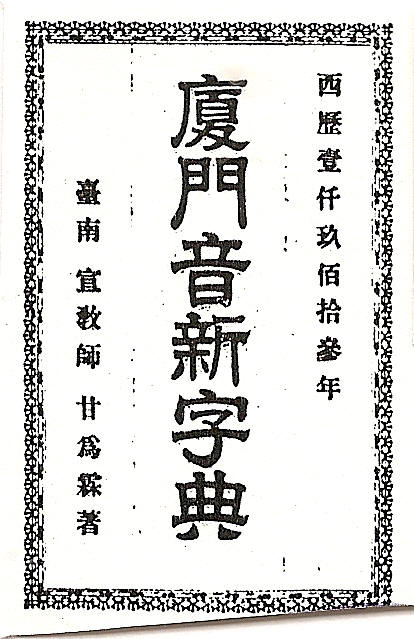 西歷壹仟玖佰拾參年
廈門音新字典
臺南 宣教師 甘為霖著